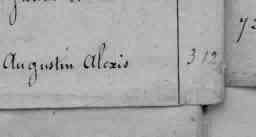 Augustin Alexis 312
73